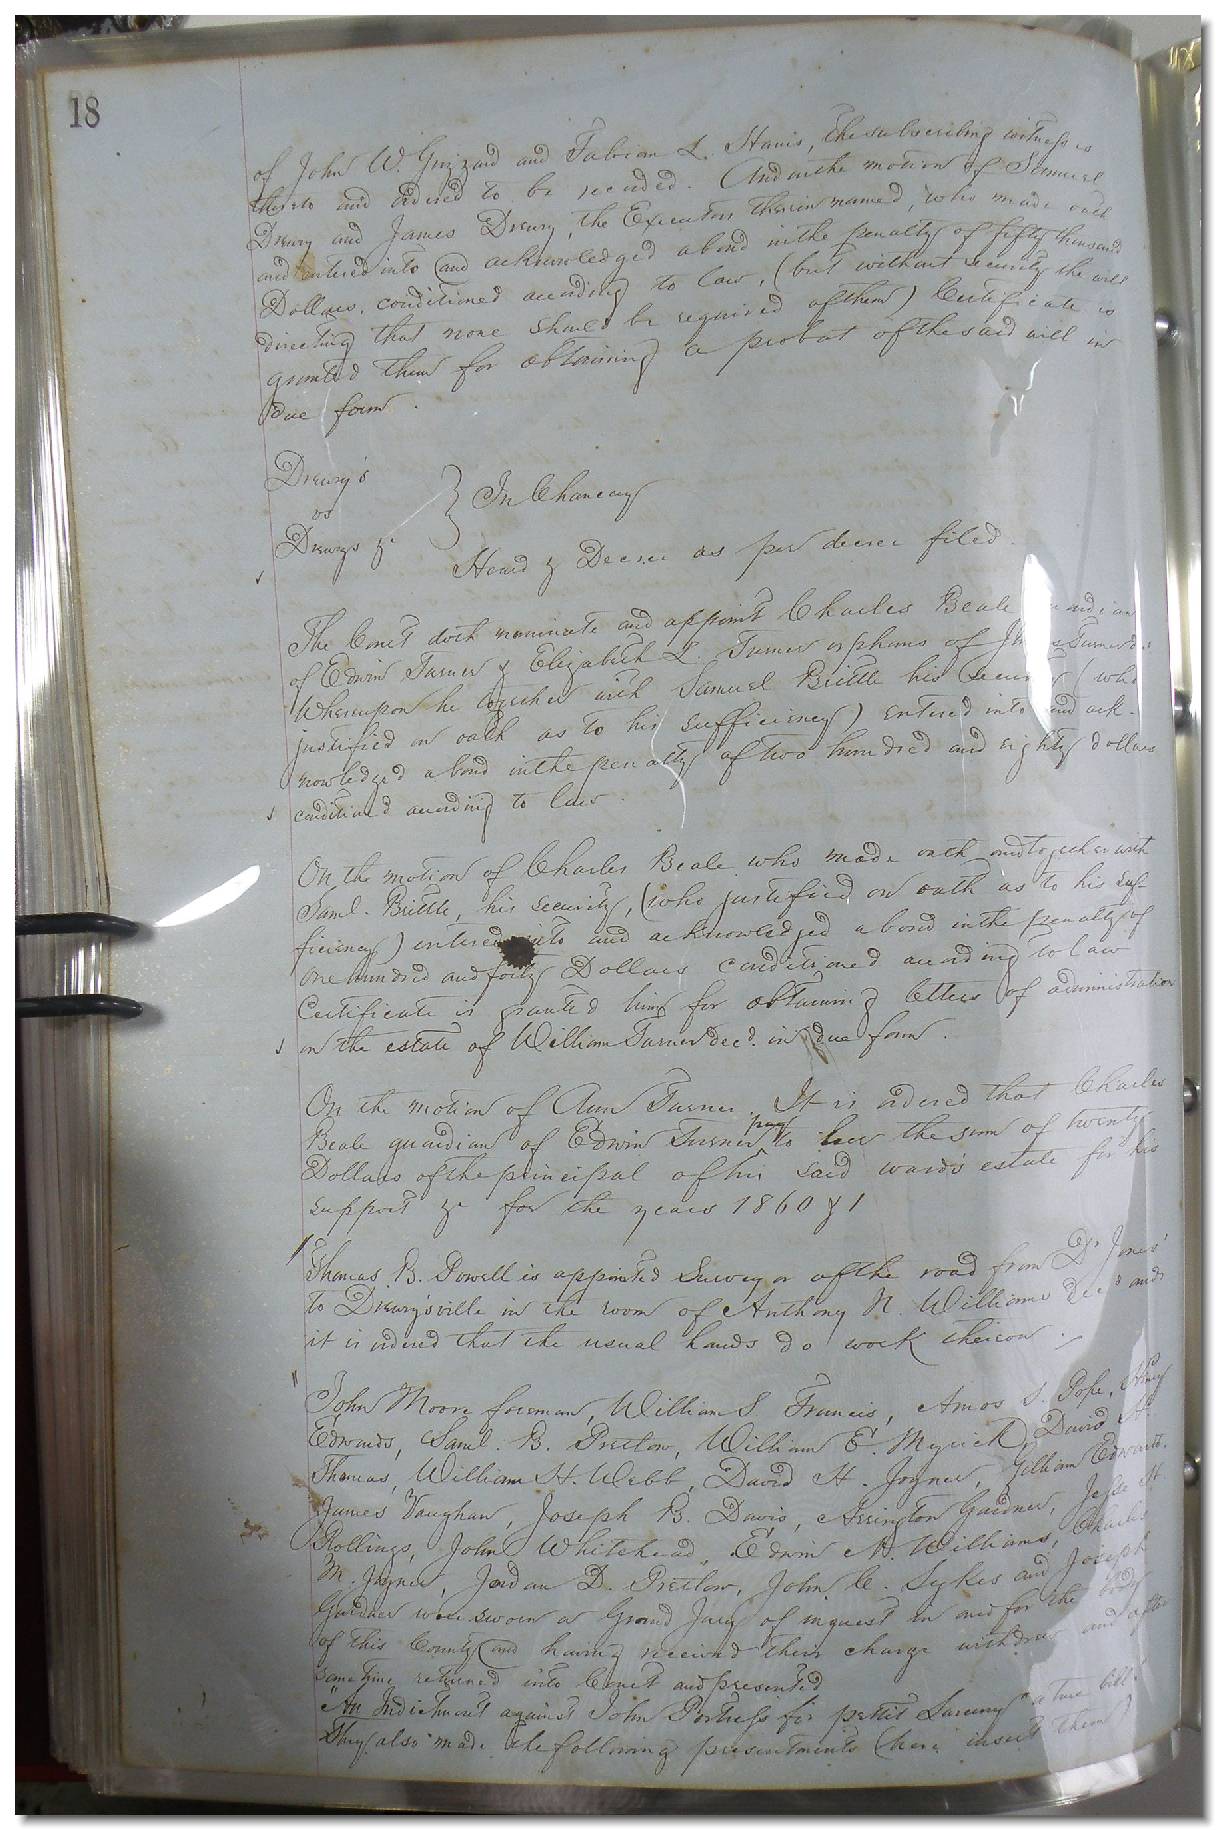 18
of John W. Grizzard and Fabian L. Harris, the subscribing witnesses
thereto and ordered to be recorded. And on the motion of Samuel
Drewry and James Drewry, the Executors therein named, who made oath
and entered into and acknowledged a bond in the penalty of fifty thousand
Dollars, conditioned according to law, (but without security the will
directing that none should be required of them) Certificate is
granted them for obtaining a probat of the said will in
due form.
Drewry's
vs
Drewrys &c
In Chancery
Heard & Decree as per decree filed.
The Court doth nominate and appoint Charles Beale guardian
of Edwin Turner & Elizabeth L. Turner orphans of Turner
Whereupon he together with Samuel Brittle his security (who
justified on oath as to his sufficiency) entered into and ack-
nowledged a bond in the penalty of two hundred and eighty dollars
conditioned according to law.
On the motion of Charles Beale who made oath and together with
Saml. Brittle, his security, (who justified on oath as to his suf-
ficiency) entered into and acknowledged a bond in the penalty of
one hundred and forty Dollars conditioned according to law
Certificate is granted him for obtaining letters of administration
on the estate of William Turner decd. in due form.
On the motion of Ann Turner. It is ordered that Charles
Beale guardian of Edwin Turner pay to her the sum of twenty
Dollars of the principal of his said ward's estate for his
support &c for the years 1860 & 1
Thomas B. Powell is appointed Surveyor of the road from Jones'
to Drewrysville in the room of Anthony N. Williams decd and
it is ordered that the usual hands do work thereon.
John Moore foreman, William S. Francis, Amos S. Pope,
Edwards, Saml. B. Pretlow, William E. Myrick, David
Thomas, William H. Webb, David H. Joyner, Gilliam Edwards,
James Vaughan, Joseph B. Davis, Arrington Gardner, Jesse H.
Rollings, John Whitehead, Edwin A. Williams, Charles
M. Joyner, Jordan D. Pretlow, John C. Sykes and Joseph
Gardner were sworn a Grand Jury of inquest in and for the body
of this County and having received their charge withdrew and after
sometime returned into Court and presented
"An Indictment against John Portress for pettit Larceny" "a true bill"
They also made the following presentments (here insert them)